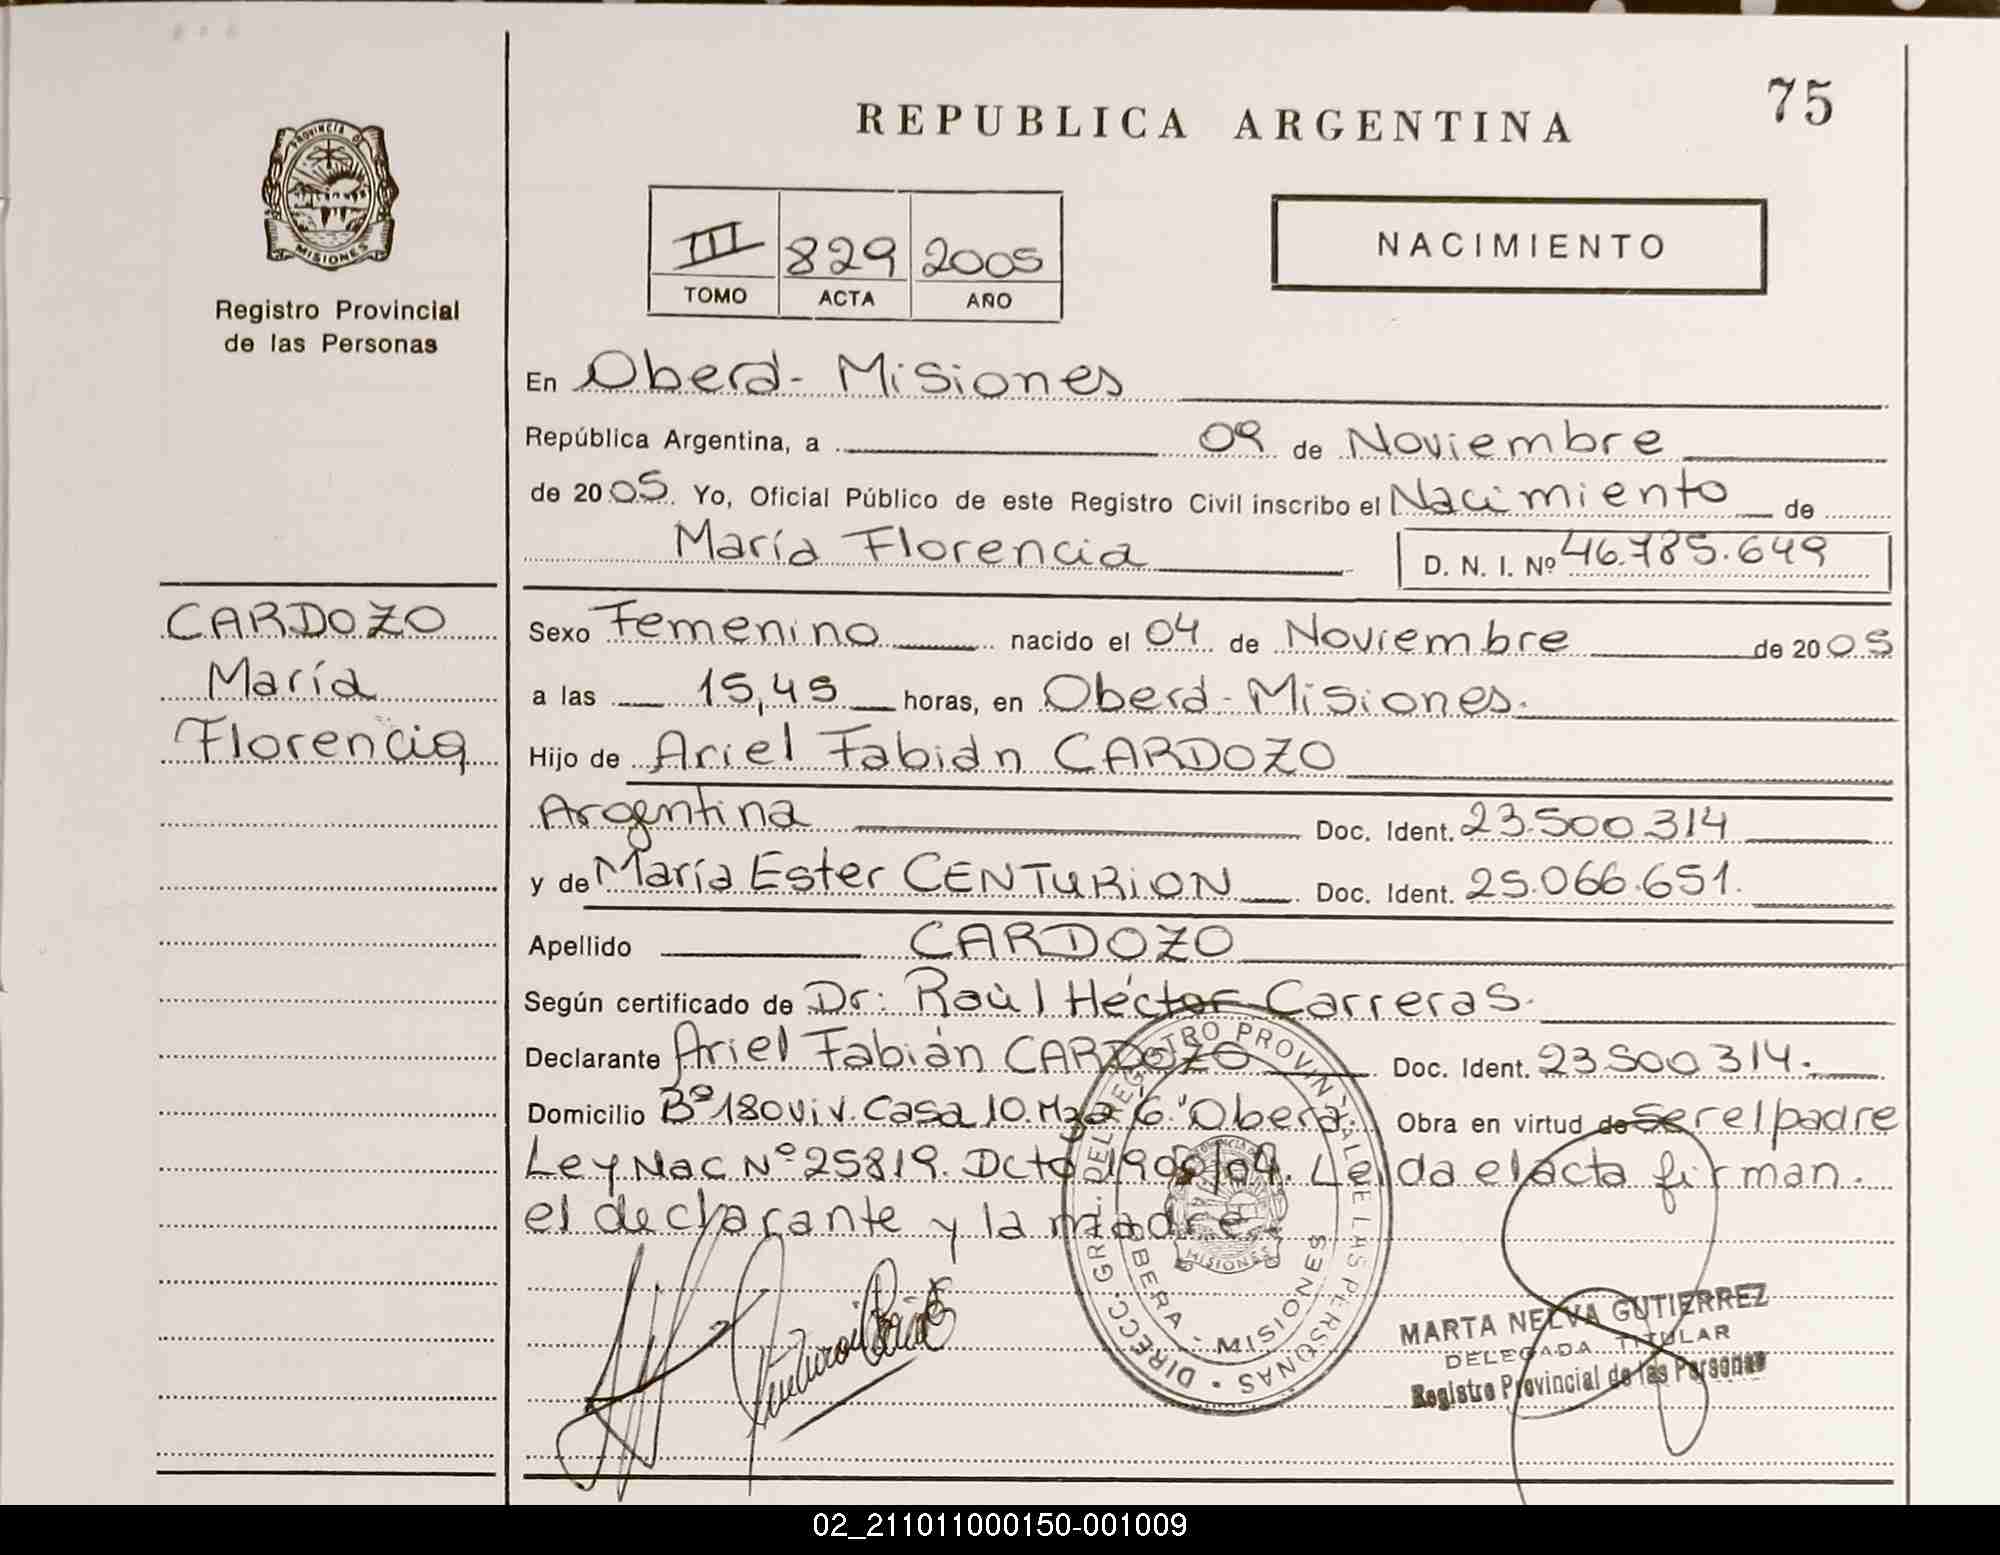 REPUBLICA ARGENTINA
75
PROVINCIA DE
MISIONES
Registro Provincial
de las Personas
III 829 2005
TOMO ACTA AÑO
NACIMIENTO
En Oberá - Misiones
República Argentina, a 09 de Noviembre
de 2005. Yo, Oficial Público de este Registro Civil inscribo el Nacimiento de
María Florencia D. N. I. Nº 46.785.649
CARDOZO
María
Florencia
Sexo Femenino nacido el 04 de Noviembre de 2005
a las 15,45 horas, en Oberá - Misiones.
Hijo de Ariel Fabián CARDOZO
Argentina Doc. Ident. 23.500.314
y de María Ester CENTURION Doc. Ident. 25.066.651.
Apellido CARDOZO
Según certificado de Dr: Raúl Héctor Carreras.
Declarante Ariel Fabián CARDOZO Doc. Ident. 23.500.314.
Domicilio Bº 180 viv. Casa 10. Mza "G" Oberá. Obra en virtud de ser el padre
Ley Nac Nº 25819. Dcto 190 /04. Leida el acta firman.
el declarante y la madre.
DIRECC. GRAL. DEL REGISTRO PROVINCIAL DE LAS PERSONAS
OBERA - MISIONES
MISIONES
MARTA NELVA GUTIERREZ
DELEGADA TITULAR
Registro Provincial de las Personas
02_211011000150-001009